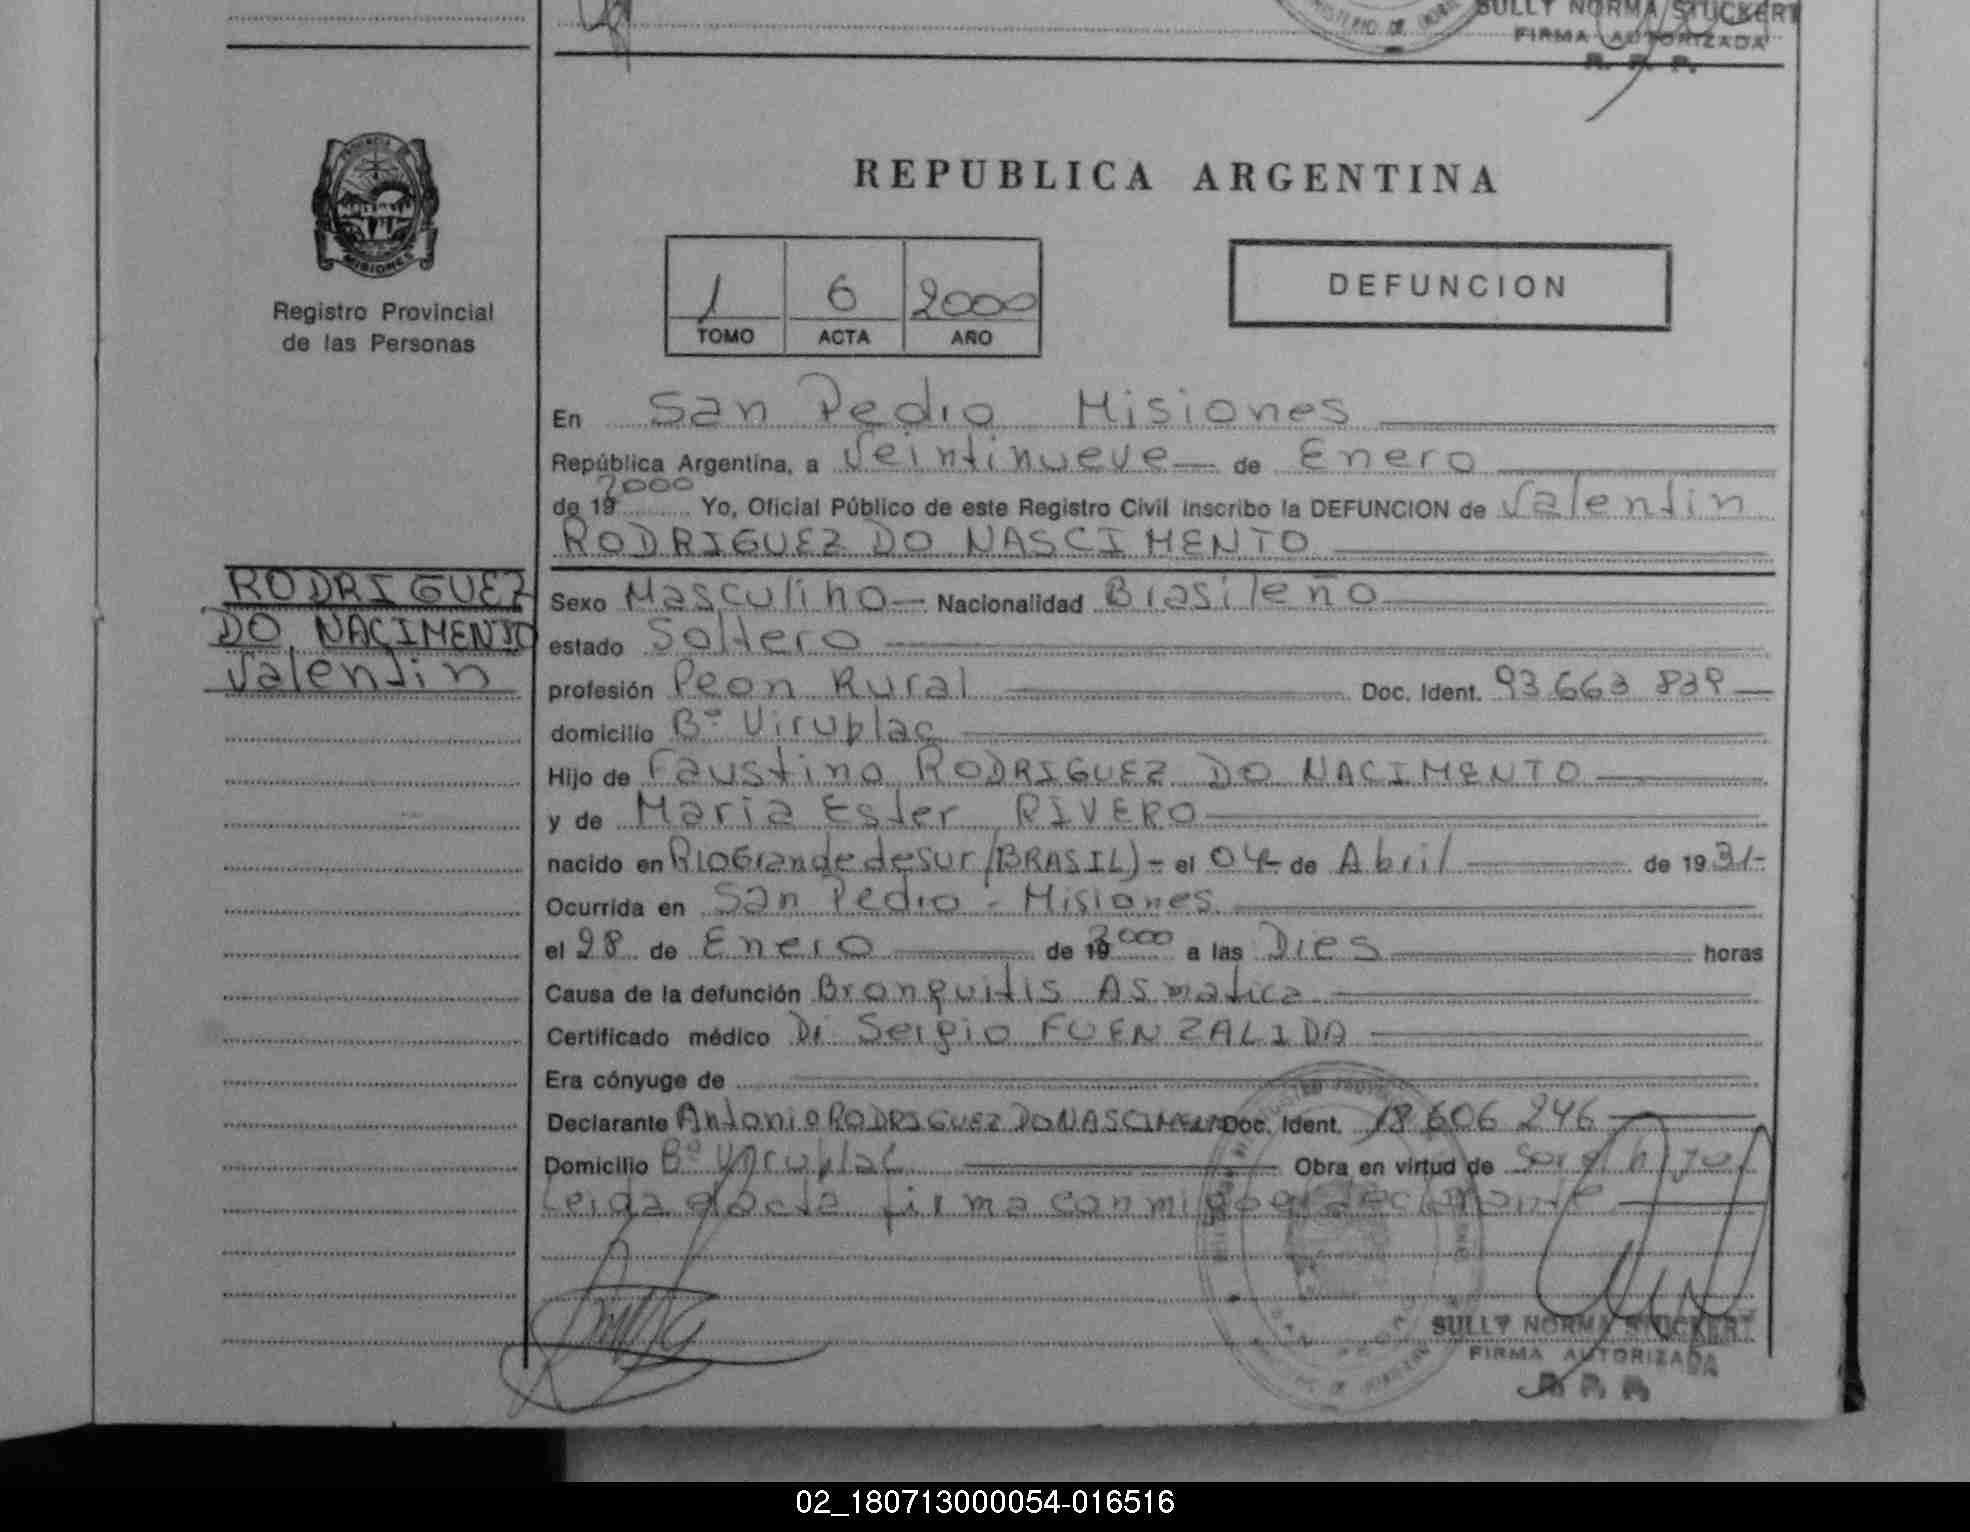 SULLY NORMA STUCKERT
FIRMA AUTORIZADA
R. P. P.
PROVINCIA DE
MISIONES
Registro Provincial
de las Personas
REPUBLICA ARGENTINA
1 6 2000
TOMO ACTA AÑO
DEFUNCION
En San Pedro Misiones
República Argentina, a Veintinueve de Enero
de 19 2000 Yo, Oficial Público de este Registro Civil inscribo la DEFUNCION de Valentin
RODRIGUEZ DO NASCIMENTO
RODRIGUEZ
DO NACIMENTO
Valentin
Sexo Masculino Nacionalidad Brasileño
estado Soltero
profesión Peon Rural Doc. Ident. 93 663 839
domicilio Bº Viruplac
Hijo de Faustino RODRIGUEZ DO NACIMENTO
y de Maria Ester RIVERO
nacido en Rio Grande de sur (BRASIL) - el 04 de Abril de 1931-
Ocurrida en San Pedro - Misiones
el 28 de Enero de 19 2000 a las Dies horas
Causa de la defunción Bronquitis Asmatica
Certificado médico Dr Sergio FUENZALIDA
Era cónyuge de
Declarante Antonio RODRIGUEZ DO NASCIMENTO Doc. Ident. 18 606 246
Domicilio Bº Viruplac Obra en virtud de Ser el hijo
Leida el acta firma conmigo el declarante
SULLY NORMA STUCKERT
FIRMA AUTORIZADA
R. P. P.
02_180713000054-016516